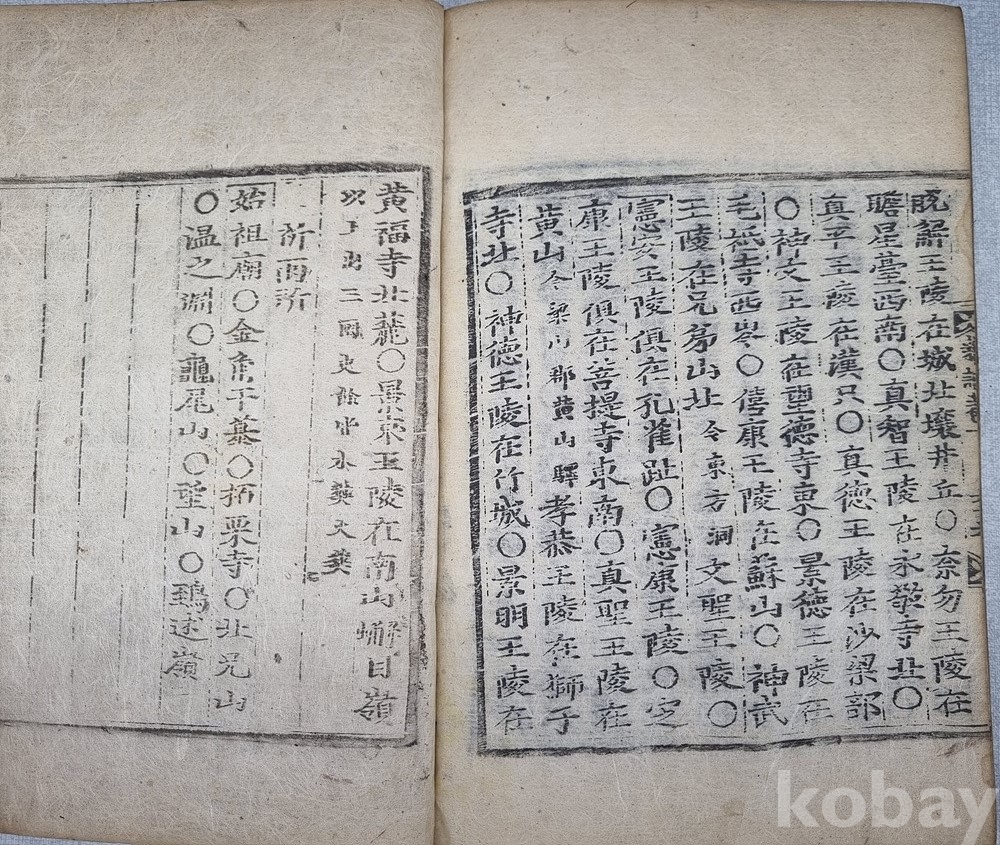 脫解王陵在城北壤井丘〇奈勿王陵在
瞻星臺西南〇真智王陵在永敬寺北〇
真平王陵在漢只〇真德王陵在沙梁部
〇神文王陵在望德寺東〇景德王陵在
毛祇寺西岑〇僖康王陵在蘇山〇神武
王陵在兄弟山北今東方洞文聖王陵〇
憲安王陵俱在孔雀趾〇憲康王陵〇定
康王陵俱在菩提寺東南〇真聖王陵在
黃山今梁山郡黃山驛孝恭王陵在獅子
寺北〇神德王陵在竹城〇景明王陵在
黃福寺北蔍〇景哀王陵在南山蠏目嶺
以上出三國史餘皆水葬火葬
祈雨所
始祖廟〇金角干墓〇栢栗寺〇北兄山
〇溫之淵〇龜尾山〇望山〇鵄述嶺
kobay